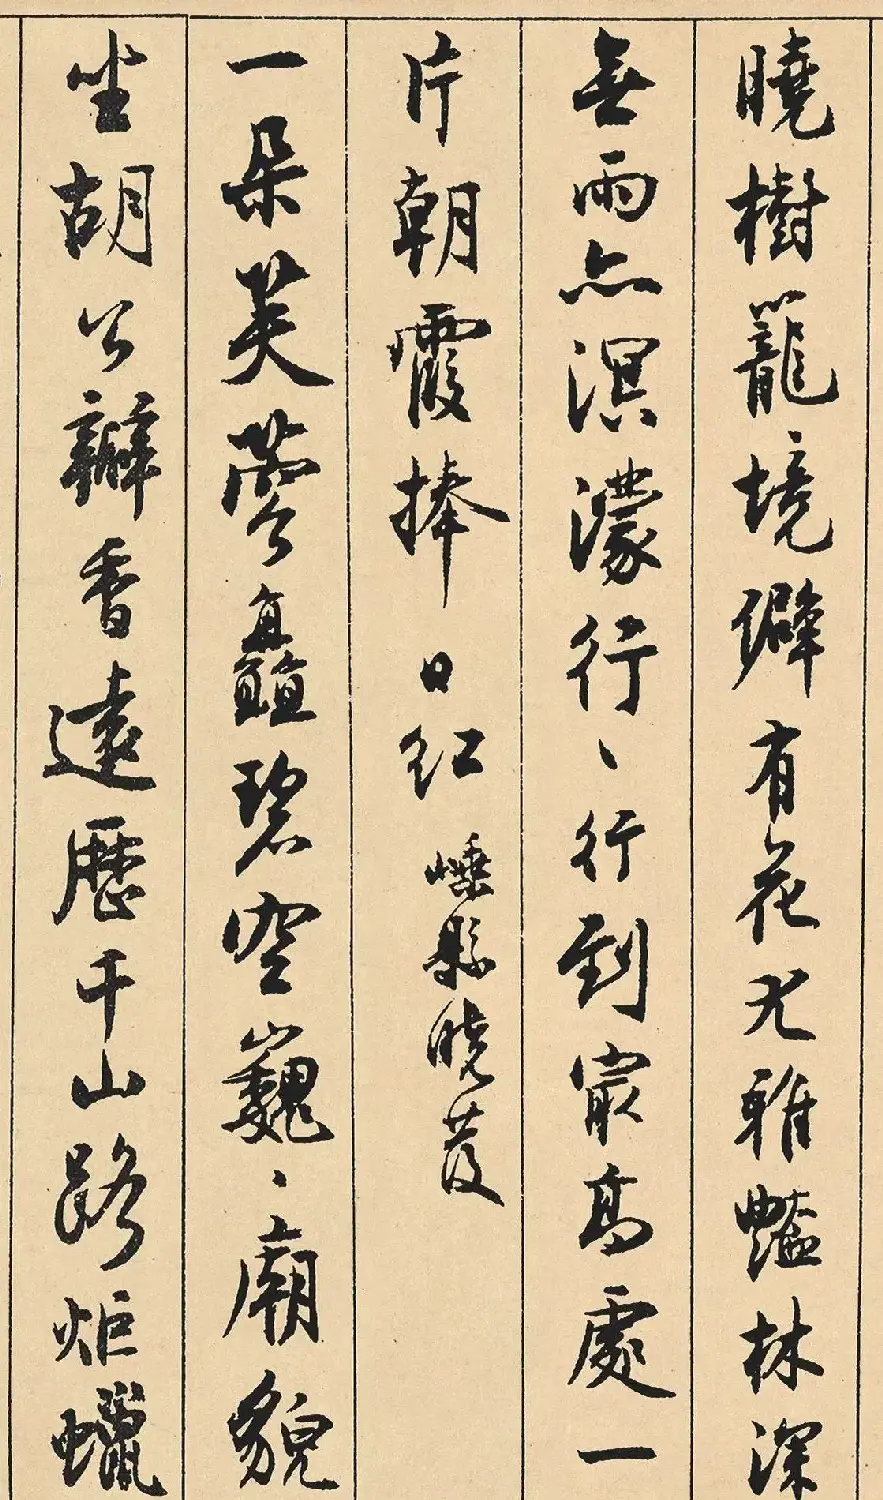 曉樹籠境僻有花尤雅豔林深
無雨亦溟濛行、行到最高處一
片朝霞捧日紅 嵊縣曉發
一朵芙蓉矗碧空巍、廟貌
坐胡公瓣香遠歷千山路炬蠟